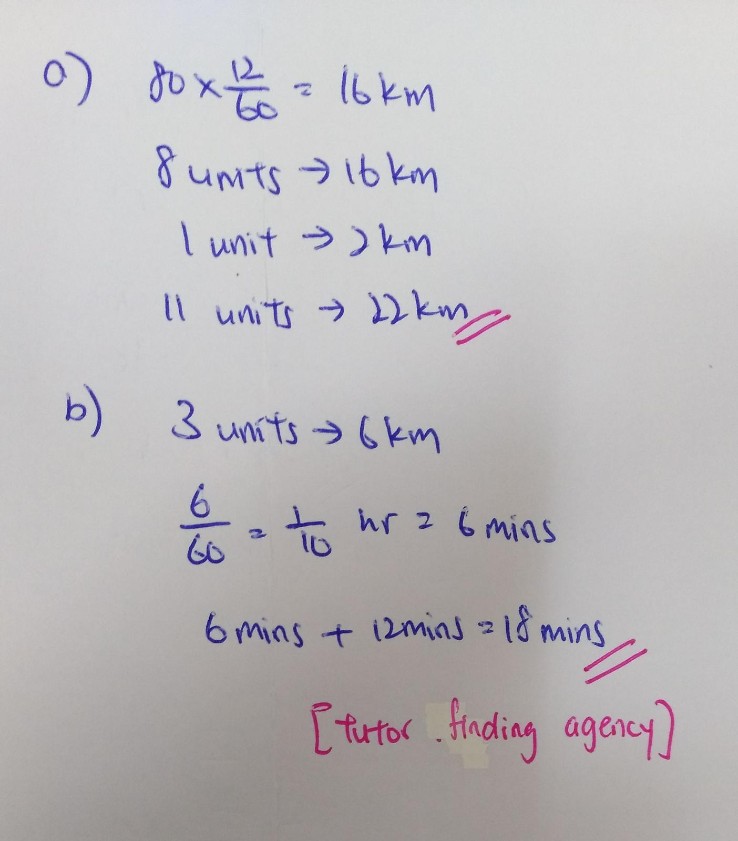 a) 80 × 12/60 = 16 km
8 units → 16 km
1 unit → 2 km
11 units → 22 km
b) 3 units → 6 km
6/60 = 1/10 hr = 6 mins
6 mins + 12 mins = 18 mins
[tutor . finding agency]